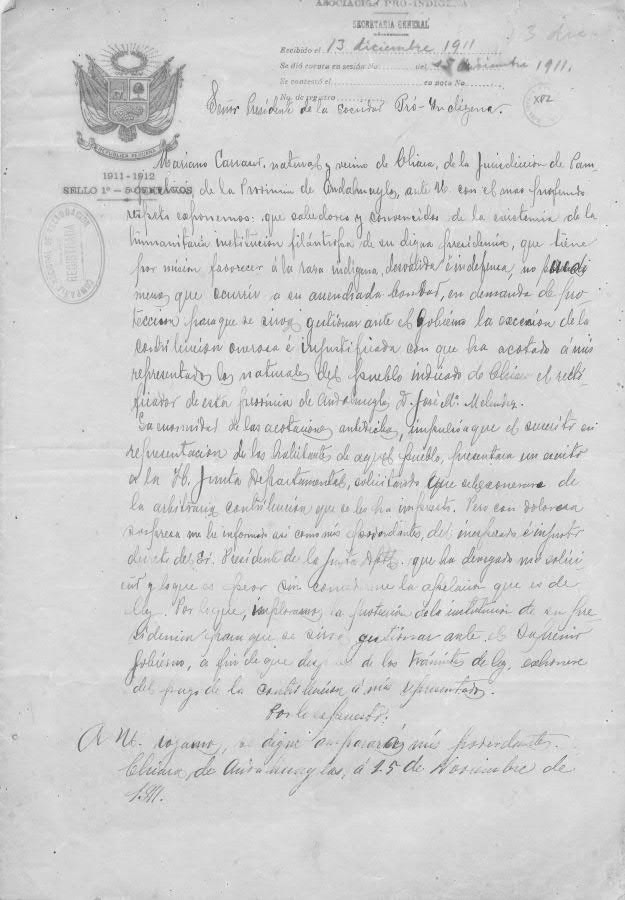 ASOCIACIÓN PRO-INDÍGENA
SECRETARIA GENERAL
Recibido el 13 diciembre 1911
Se dió cuenta en sesión No. del 15 diciembre 1911.
Se contestó el en nota No.
No. de registro
REPUBLICA PERUANA
1911-1912
SELLO 1º - 5 CENTAVOS
Señor Presidente de la Sociedad Pró-Indígena.
Mariano natural y vecino de Chiara, de la Jurisdicción de Pam-
de la Provincia de Andahuaylas, ante U. con el mas profundo
respeto exponemos: que sabedores y convencidos de la existencia de la
humanitaria institución filántrofa de su digna presidencia, que tiene
por mision favorecer á la raza indígena, desvalida é indefensa, no puedo
menos que ocurrir a su acendrada bondad, en demanda de pro-
teccion para que se sirva gestionar ante el Gobierno la excension de la
contribucion onerosa é injustificada con que ha acotado á mis
representados los naturales del pueblo indicado de Chiara el recti-
ficador de esta provincia de Andahuaylas D. José Mª Melendez.
La enormidad de las acotaciones antedichas, que el suscrito en
representacion de los habitantes de aquel pueblo, presentara un escrito
a la H. Junta Departamental, solicitando que se les exonerara de
la arbitraria contribucion que se les ha impuesto. Pero con dolorosa
sorpresa me he informado asi como mis poderdantes, del inesperado é injusto
decreto del Sr. Presidente de la Junta Dptl. que ha denegado mi solici-
tud y lo que es peor sin concederme la apelacion que es de
ley. Por lo que, imploramos la proteccion de la institucion de su pre-
sidencia para que se sirva gestionar ante el Supremo
Gobierno, a fin de que despues de los trámites de ley, exhonere
del pago de la contribucion á mis representados.
Por lo expuesto:
A U. rogamos, se digne amparar á mis poderdantes.
Chiara de Andahuaylas, á 25 de Noviembre de
1911.